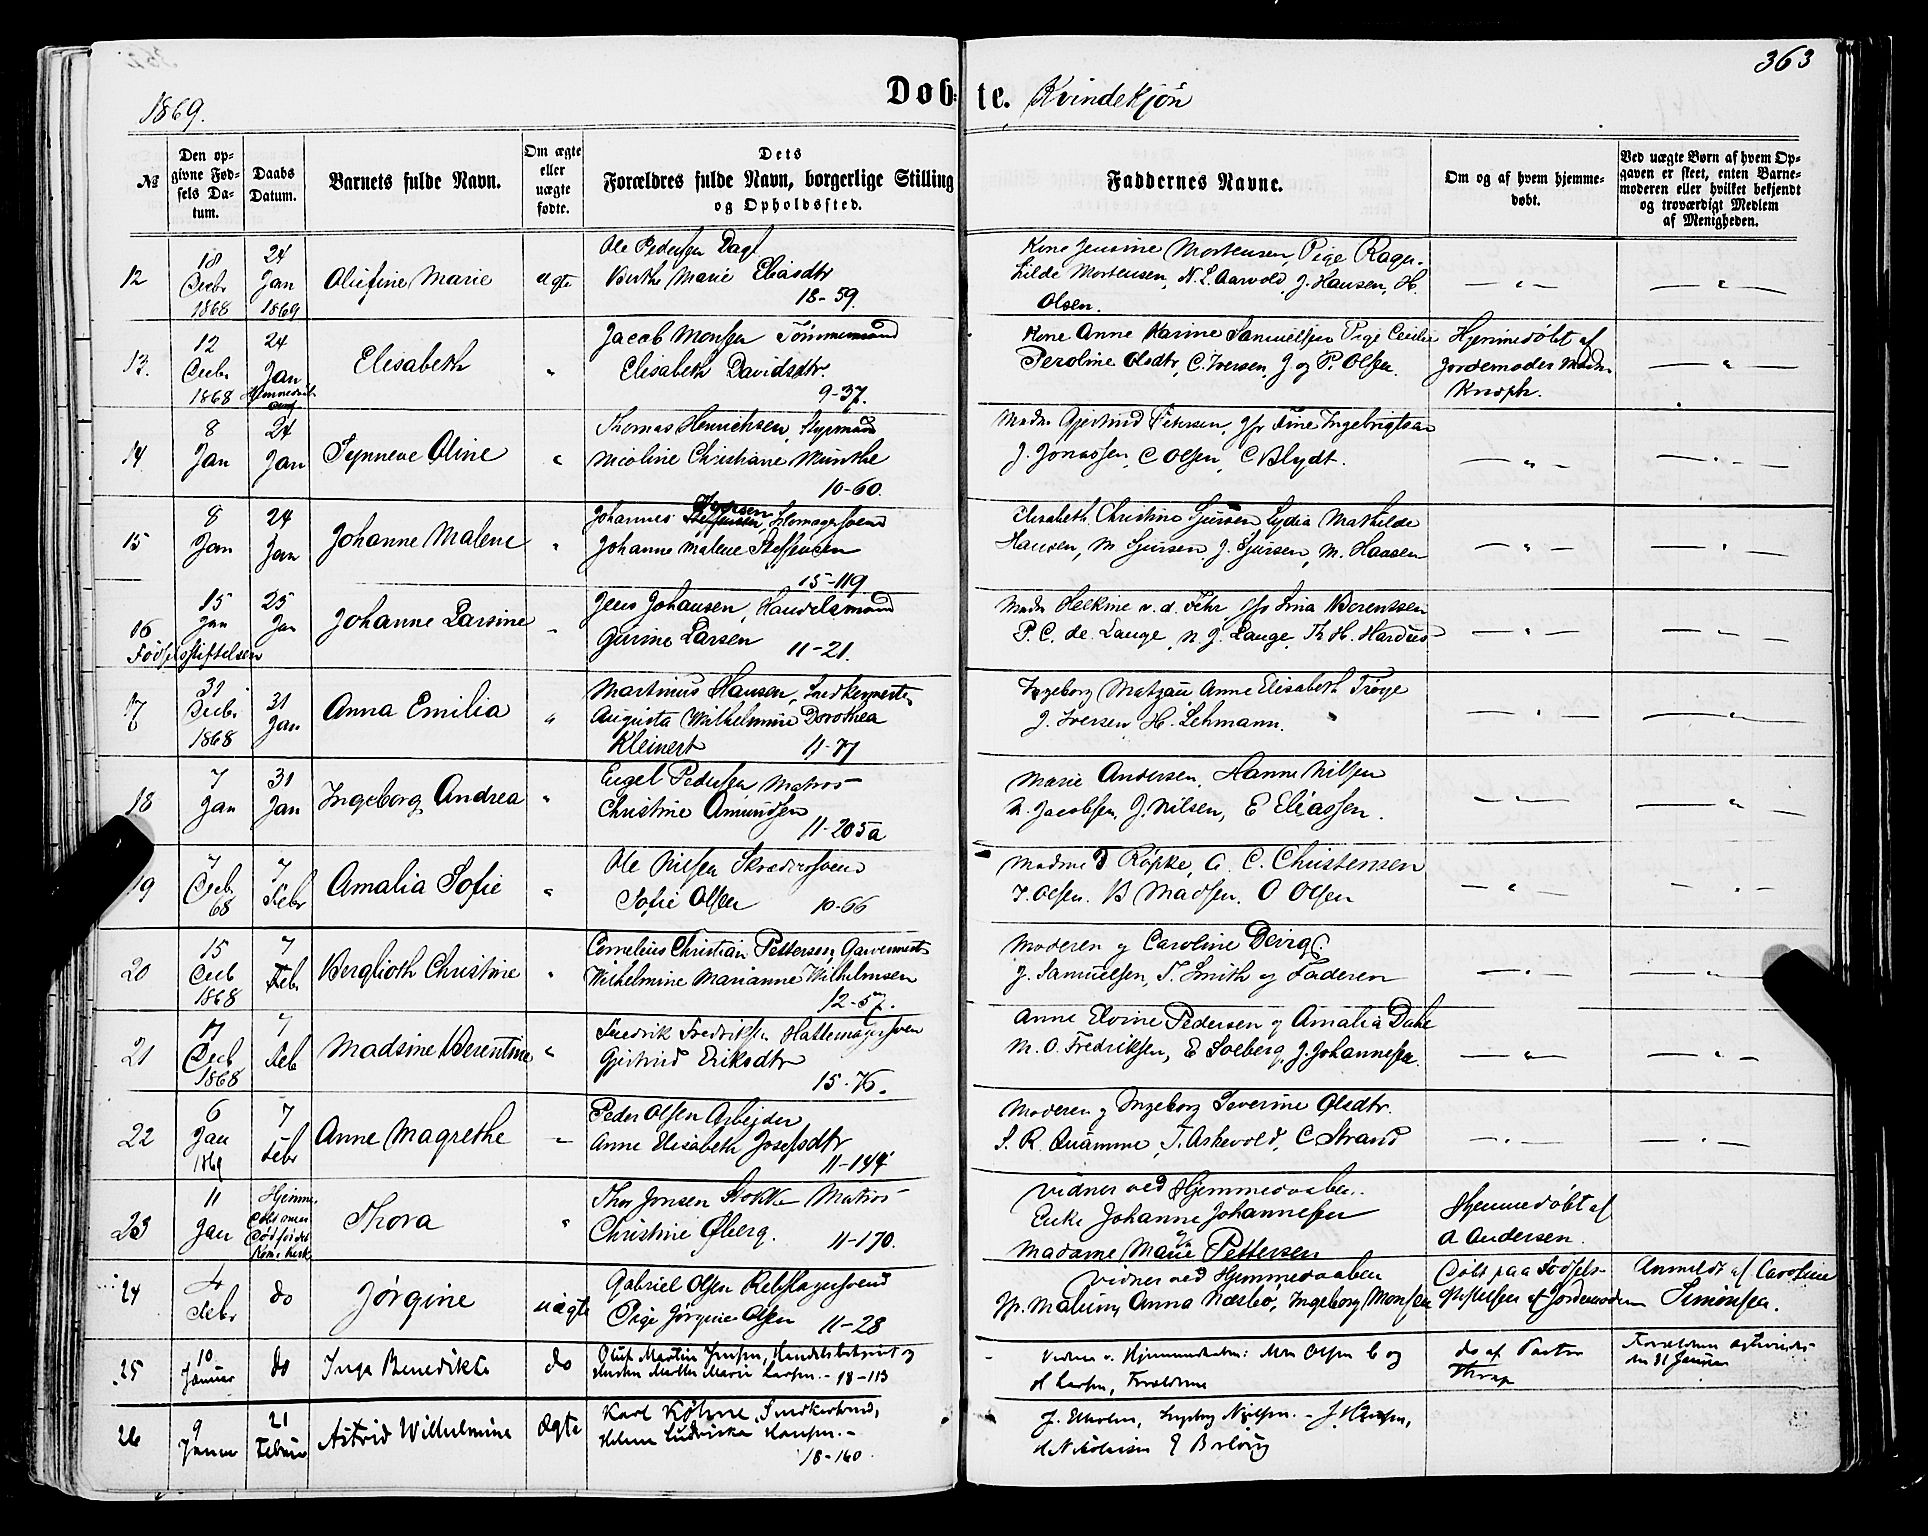 363
1869.
Døbte. Kvindekjøn
No
Den opgivne Fødsels Datum.
Daabs Datum.
Barnets fulde Navn.
Om ægte eller uægte fødte.
Dets Forældres fulde Navn, borgerlige Stilling og Opholdssted.
Faddernes Navne.
Om og af hvem hjemmedøbt.
Ved uægte Børn af hvem Opgaven er skeet, enten Barnemoderen eller hvilket bekjendt og troværdigt Medlem af Menigheden.
12
18 Decbr 1868
24 Jan 1869
Oliefine Marie
ægte
Ole Pedersen Dagl
Berthe Marie Eliasdtr
18-59.
Kone Jensine Mortensen, Pige Ragn-
hilde Mortensen, N. L. Aarvold, J. Hansen, H.
Olsen.
13.
12 Decbr 1868
24 Jan
Elisabeth
"
Jacob Monsen Tømmermand
Elisabeth Davidsdtr.
9-37.
Kone Anne Karine Samuelsen Pige Cecilie
Peroline Olsdtr, C. Iversen, J. og P. Olsen.
Hjemmedøbt af
Jordemoder Madm
Knoph.
14.
8 Jan
24 Jan
Synneve Oline
"
Thomas Henrichsen, Styrmand
Nicoline Christiane Munthe
10-60.
Madm Gjertrud Petersen, Jfr Tine Ingebrigtsen
J. Jonassen, C Olsen, C Blydt.
15
8 Jan
24 Jan
Johanne Malene
"
Johannes Sjursen, Skomagersvend
Johanne Malene Steffensen
15-119
Elisabeth Christine Sjursen Lydia Mathilde
Hansen, M Sjursen J. Sjursen, M. Hansen
16
Fødselsstiftelsen
15 Jan
25 Jan
Johanne Larsine
"
Jens Johansen, Handelsmand
Gurine Larsen
11-21.
Madm Heekine v. d. Fehr, Jfr Lina Berentsen
P. C. de Lange, N. J. Lange, Th H.
17
31 Decbr 1868
31 Jan
Anna Emilia
"
Martinus Hansen, Snedkermester
Augusta Wilhelmine Dorothea
Kleinert
11-71
Ingeborg Matzau, Anne Elisabeth Trøye
J. Iversen, H. Lehmann.
18
7 Jan
31 Jan
Ingeborg Andrea
"
Engel Pedersen Matros
Christine Amundsen
11-205a
Marie Andersen, Hanne Nilsen
A. Jacobsen, J. Nilsen, E Eliassen.
19
7 Decbr 68
7 Febr
Amalia Sofie
"
Ole Nilsen Skrædersvend
Sofie Olsen
10-66
Madme D Røpke, A. C. Christensen
J. Olsen. B Madsen. O Olsen
20
15 Decb 1868
7 Febr
Berglioth Christine
"
Cornelius Christian Pettersen, Garvermestr
Wilhelmine Marianne Wilhelmsen
12-57.
Moderen og Caroline
J. Samuelsen, T. Smith og Faderen
21
17 Decb 1868
7 Feb
Madsine Berentine
"
Fredrik Fredriksen Hattemagersvend
Gjertrud Eriksdtr
15-76.
Anne Elvine Pedersen og Amalia Dahl
M. O. Fredriksen, E Solberg, J. Johannesen.
22
6 Jan 1869
7 Febr
Anne Magrethe
"
Peder Olsen Arbejder
Anne Elisabeth Josefsdtr
11-144
Moderen og Ingeborg Severine Olsdtr.
S. R. Quamme, T. Askevold, C Strand
23
11 Jan
Hjemmedøbt
Thora
"
Thor Jonsen Stokke Matros
Christine Øberg.
11-170.
Vidner ved Hjemmedaaben.
Enke Johanne Johannesen
og Madame Marie Pettersen
Hjemmedøbt af
A Andersen.
24
4 Febr
do
Jørgine
uægte
Gabriel Olsen Rebslagersvend
Pige Jørgine Olsen
11-28
Vidner ved Hjemmedaaben
Anna Næsbø, Ingeborg Monsen
Døbt paa Fødsels-
stiftelsen af Jordemoderen
Anmeldt af Caroline
Simonsen.
25
10 Januar
do
Inga Benedikte
do
Oluf Martin Jensen, Handelsbetjent og
Marthe Marie Larsen. - 18-113
Vidner v. Hjemmedaaben: Mdm Olsen C og
H Larsen, Forældrene
do af Pastor
Thrap
26
9 Januar
21 Februar
Astrid Wilhelmine
Ægte
Karl Köhne, Snedkersvend,
Helene Ludvikka Hansen.-
18-160.
J. Ellertsen, Ingeborg Nielsen.- J. Hansen,